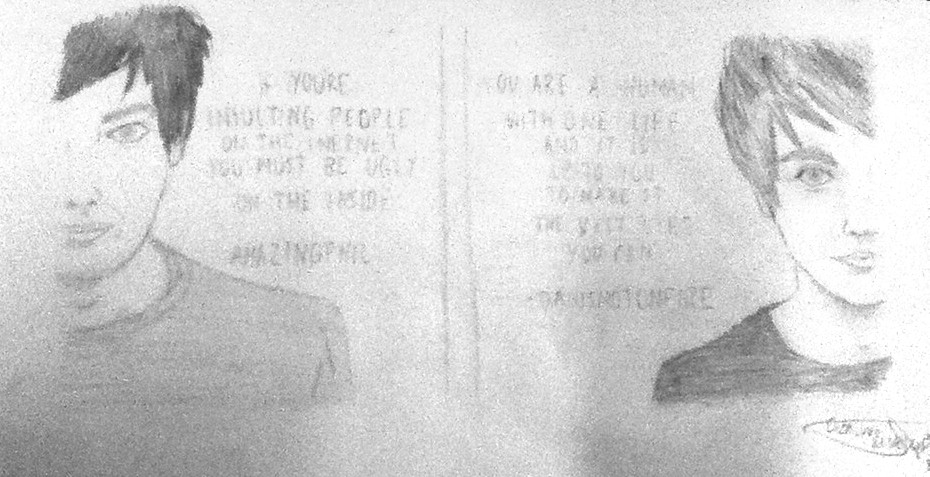 IF YOU'RE
INSULTING PEOPLE
ON THE INTERNET
YOU MUST BE UGLY
ON THE INSIDE
AMAZINGPHIL
YOU ARE A HUMAN
WITH ONE LIFE
AND IT IS
UP TO YOU
TO MAKE IT
THE BEST LIFE
YOU CAN
-DANISNOTONFIRE